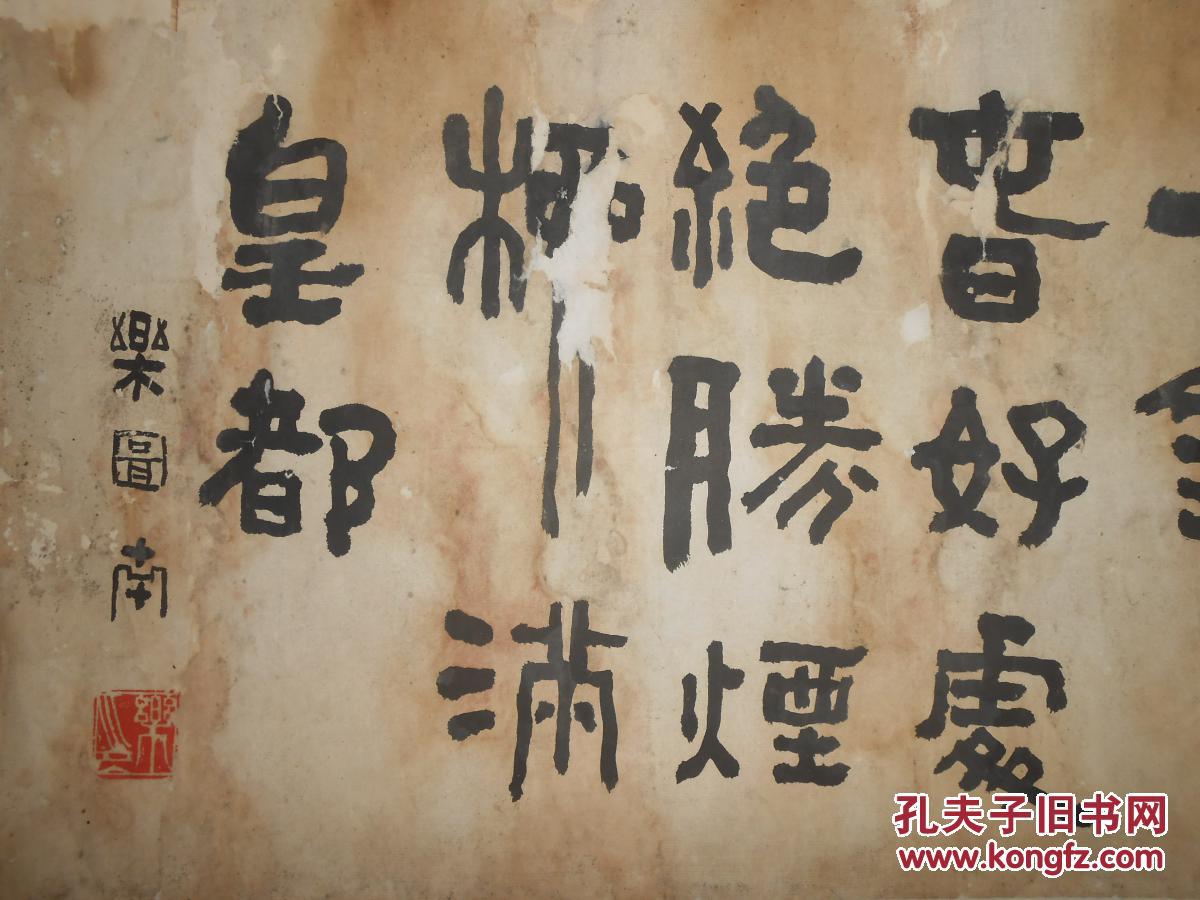 一
春好處
絕勝煙
柳滿
皇都
樂圖南
樂
孔夫子旧书网
www.kongfz.com